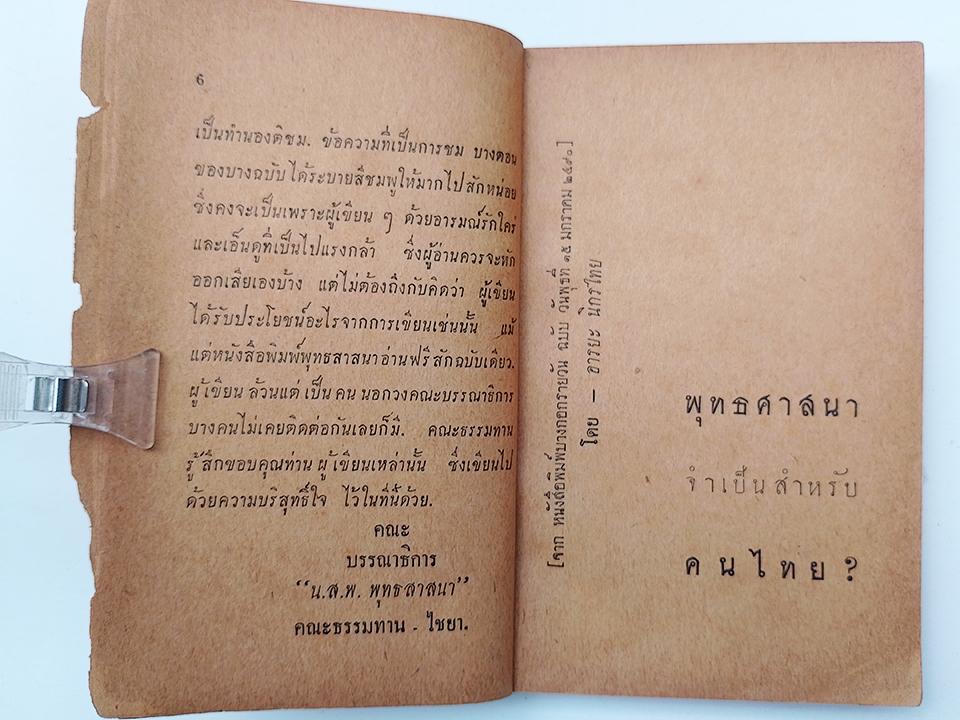 6
เป็นทำนองติชม. ข้อความที่เป็นการชม บางตอน
ของบางฉบับได้ระบายสีชมพูให้มากไปสักหน่อย
ซึ่งคงจะเป็นเพราะผู้เขียน ๆ ด้วยอารมณ์รักใคร่
และเอ็นดูที่เป็นไปแรงกล้า ซึ่งผู้อ่านควรจะหัก
ออกเสียเองบ้าง แต่ไม่ต้องถึงกับคิดว่า ผู้เขียน
ได้รับประโยชน์อะไรจากการเขียนเช่นนั้น แม้
แต่หนังสือพิมพ์พุทธสาสนาอ่านฟรีสักฉบับเดียว.
ผู้เขียนล้วนแต่เป็นคนนอกวงคณะบรรณาธิการ
บางคนไม่เคยติดต่อกันเลยก็มี. คณะธรรมทาน
รู้สึกขอบคุณท่านผู้เขียนเหล่านั้น ซึ่งเขียนไป
ด้วยความบริสุทธิ์ใจ ไว้ในที่นี้ด้วย.
คณะ
บรรณาธิการ
“น.ส.พ. พุทธสาสนา”
คณะธรรมทาน - ไชยา.
พุทธศาสนา
จำเป็นสำหรับ
คนไทย?
[จาก หนังสือพิมพ์บางกอกรายวัน ฉบับ วันพุธที่ ๑๕ มกราคม ๒๔๙๐]
โดย – อารยะ นิกรไทย